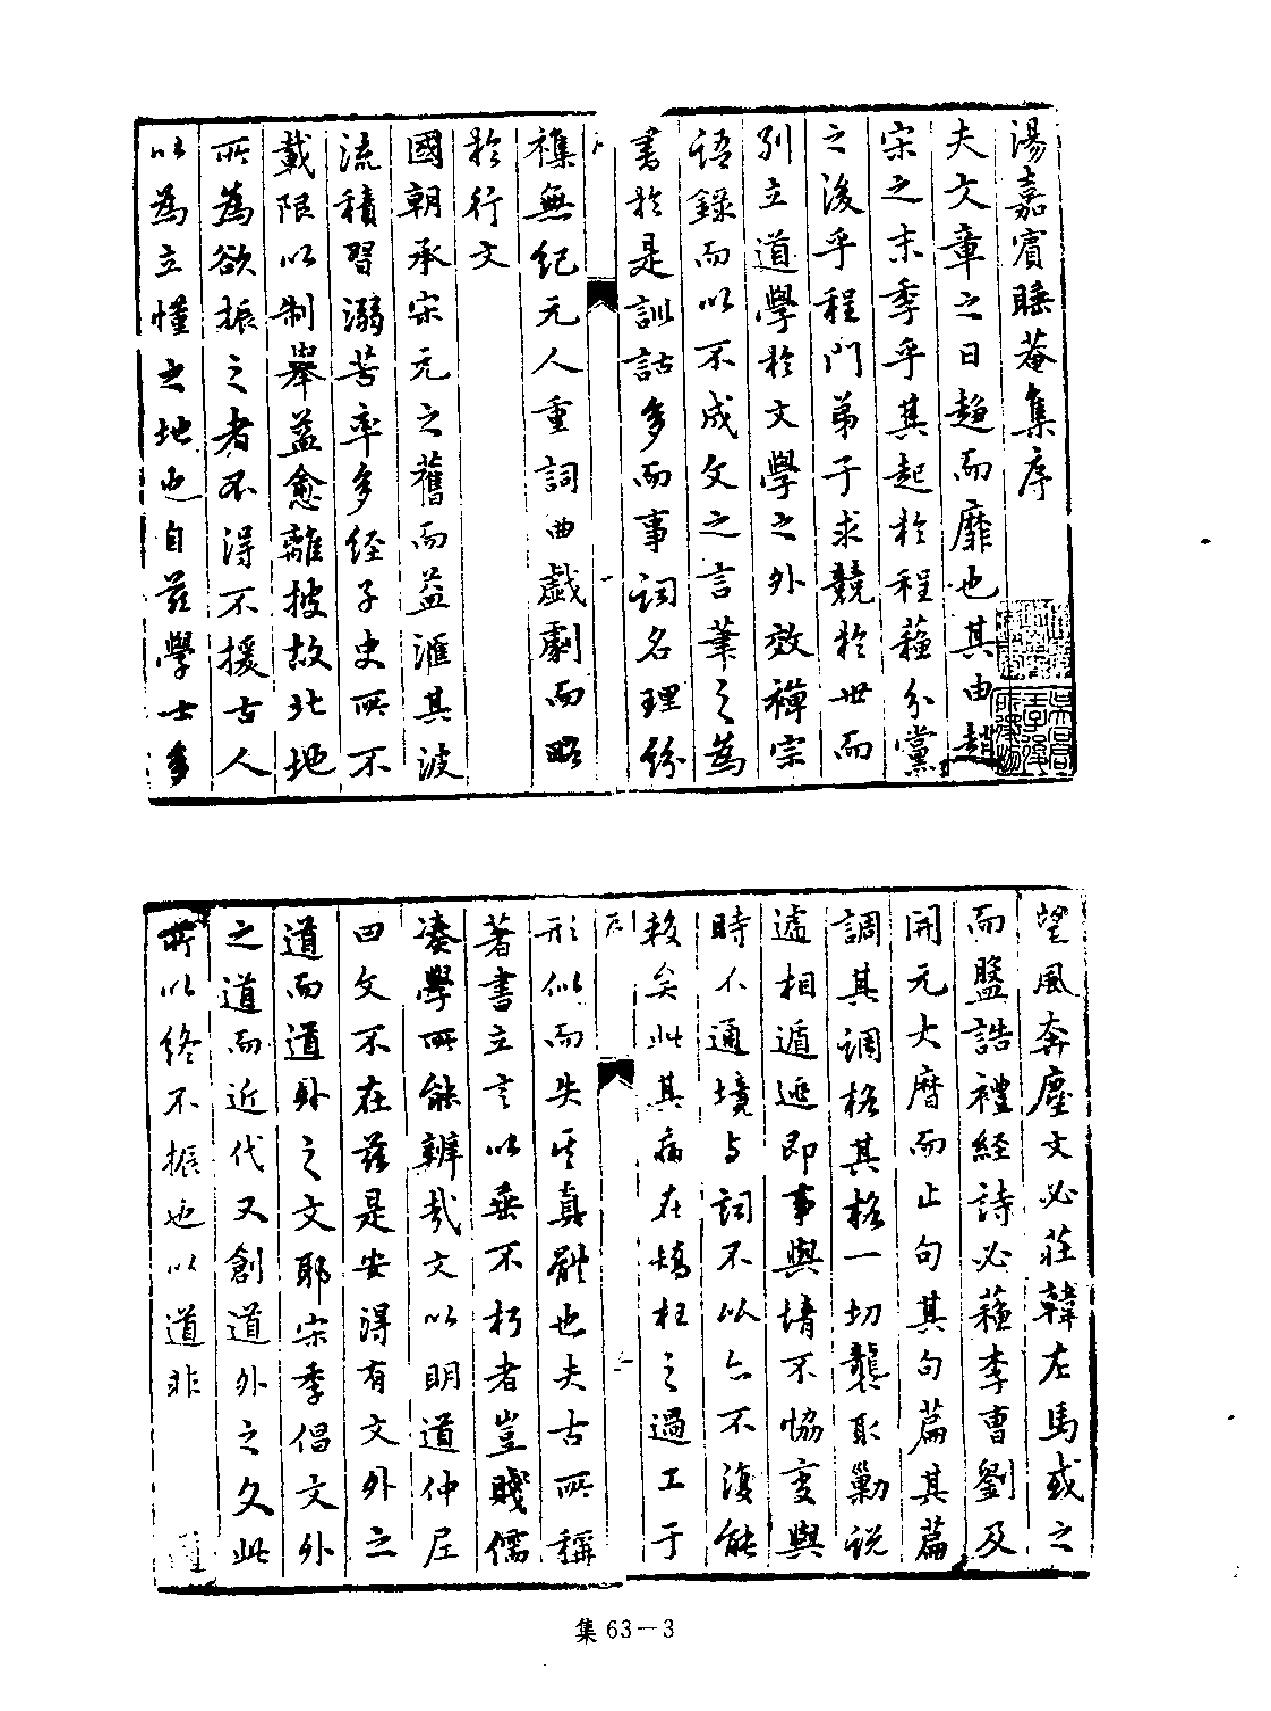 湯嘉賓睡菴集序
夫文章之日趨而靡也其由趙
宋之末季乎其起於程蘓分黨
之後乎程門弟子求競於世而
別立道學於文學之外效禪宗
語錄而以不成文之言筆之為
書於是訓詁多而事詞名理紛
襍無紀元人重詞曲戯劇而略
於行文
國朝承宋元之舊而益滙其波
流積習溺苦率多經子史所不
載限以制舉益愈離披故北地
所為欲振之者不得不援古人
以為立懂之地也自茲學士多
望風奔塵文必莊韓左馬或之
而盤誥禮經詩必蘓李曹劉及
開元大曆而止句其句篇其篇
調其調格其格一切襲取勦説
遽相遁遞即事與情不恊变與
時不通境与詞不以合不復能
救矣此其病在矯枉之過工于
形似而失其真骵也夫古所稱
著書立言以垂不朽者豈賤儒
湊學所能辦哉文以明道仲尼
曰文不在茲是安得有文外之
道而道外之文耶宋季倡文外
之道而近代又創道外之文此
所以終不振也以道非
序
一
序
集 63－3